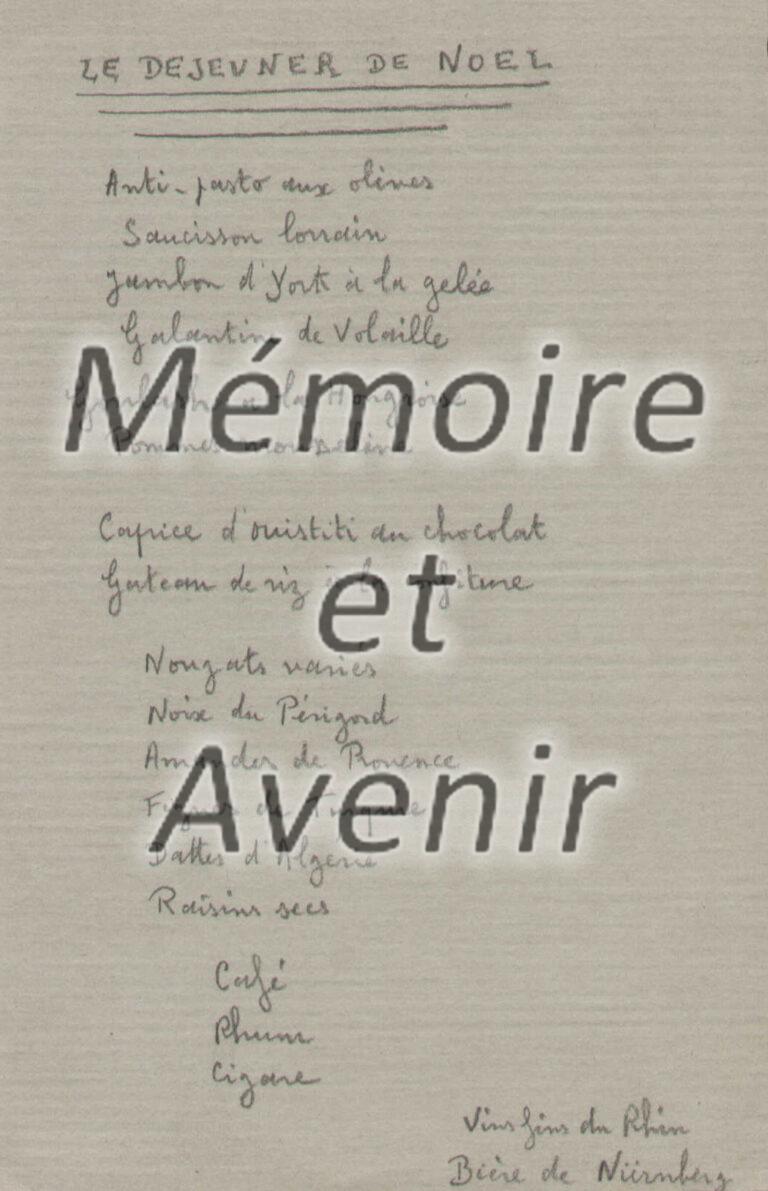 LE DEJEUNER DE NOEL
Anti-pasto aux olives
Saucisson lorrain
Jambon d'York à la gelée
Galantine de Volaille
à la Hongroise
Mémoire
Pommes mousseline
Caprice d'ouistiti au chocolat
Gateau de riz à la confiture
et
Nougats variés
Noix du Périgord
Amandes de Provence
Figues de Turquie
Avenir
Dattes d'Algerie
Raisins secs
Café
Rhum
Cigare
Vins fins du Rhin
Bière de Nürnberg